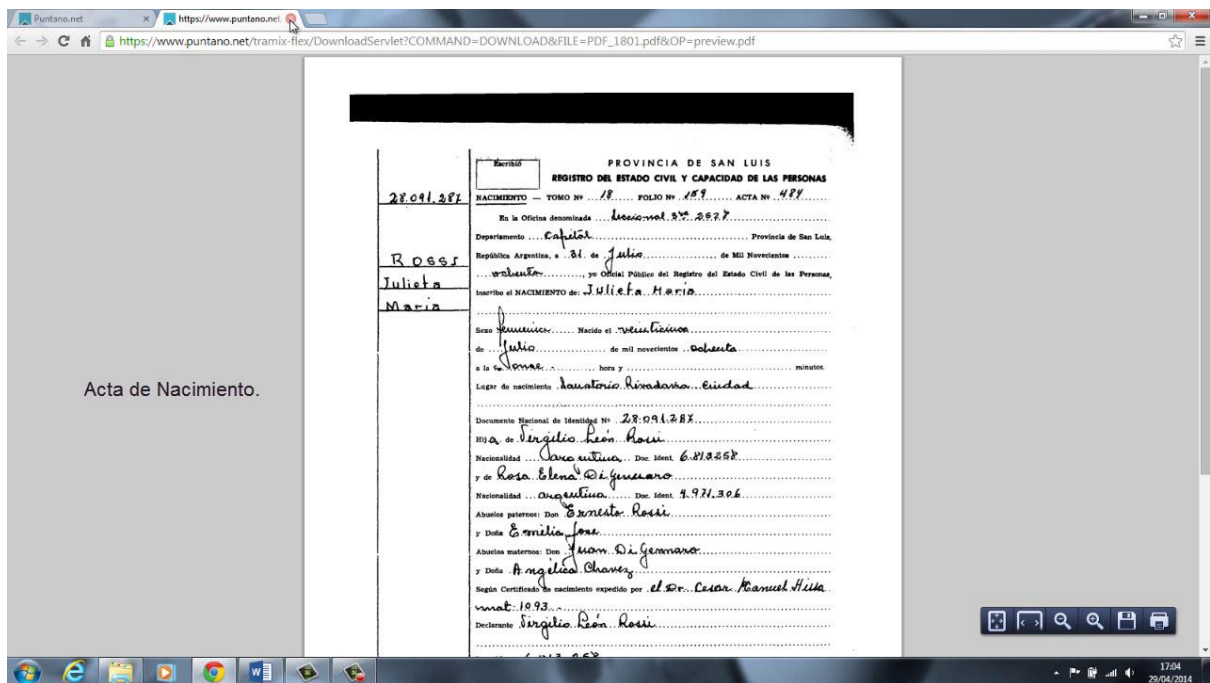 Puntano.net
https://www.puntano.net.
https://www.puntano.net/tramix-flex/DownloadServlet?COMMAND=DOWNLOAD&FILE=PDF_1801.pdf&OP=preview.pdf
Acta de Nacimiento.
28.091.287
ROSSI
Julieta
Maria
Escribió
PROVINCIA DE SAN LUIS
REGISTRO DEL ESTADO CIVIL Y CAPACIDAD DE LAS PERSONAS
NACIMIENTO — TOMO Nº 18 FOLIO Nº 159 ACTA Nº 484
En la Oficina denominada
Departamento Capital Provincia de San Luis,
República Argentina, a 31 de Julio de Mil Novecientos
ochenta, yo Oficial Público del Registro del Estado Civil de las Personas,
inscribo el NACIMIENTO de: Julieta Maria
Sexo femenino Nacido el veinticinco
de Julio de mil novecientos ochenta
a la s once hora y minutos.
Lugar de nacimiento Sanatorio Rivadavia Ciudad
Documento Nacional de Identidad Nº 28.091.287
Hij a de Virgilio León Rossi
Nacionalidad argentina Doc. Ident. 6.813258
y de Rosa Elena Di Gennaro
Nacionalidad argentina Doc. Ident. 4.971.306
Abuelos paternos: Don Ernesto Rossi
y Doña Emilia Jose
Abuelos maternos: Don Juan Di Gennaro
y Doña Angélica Chavez
Según Certificado de nacimiento expedido por el Dr. Cesar Manuel Hissa
mat. 1093
Declarante Virgilio León Rossi
17:04
29/04/2014